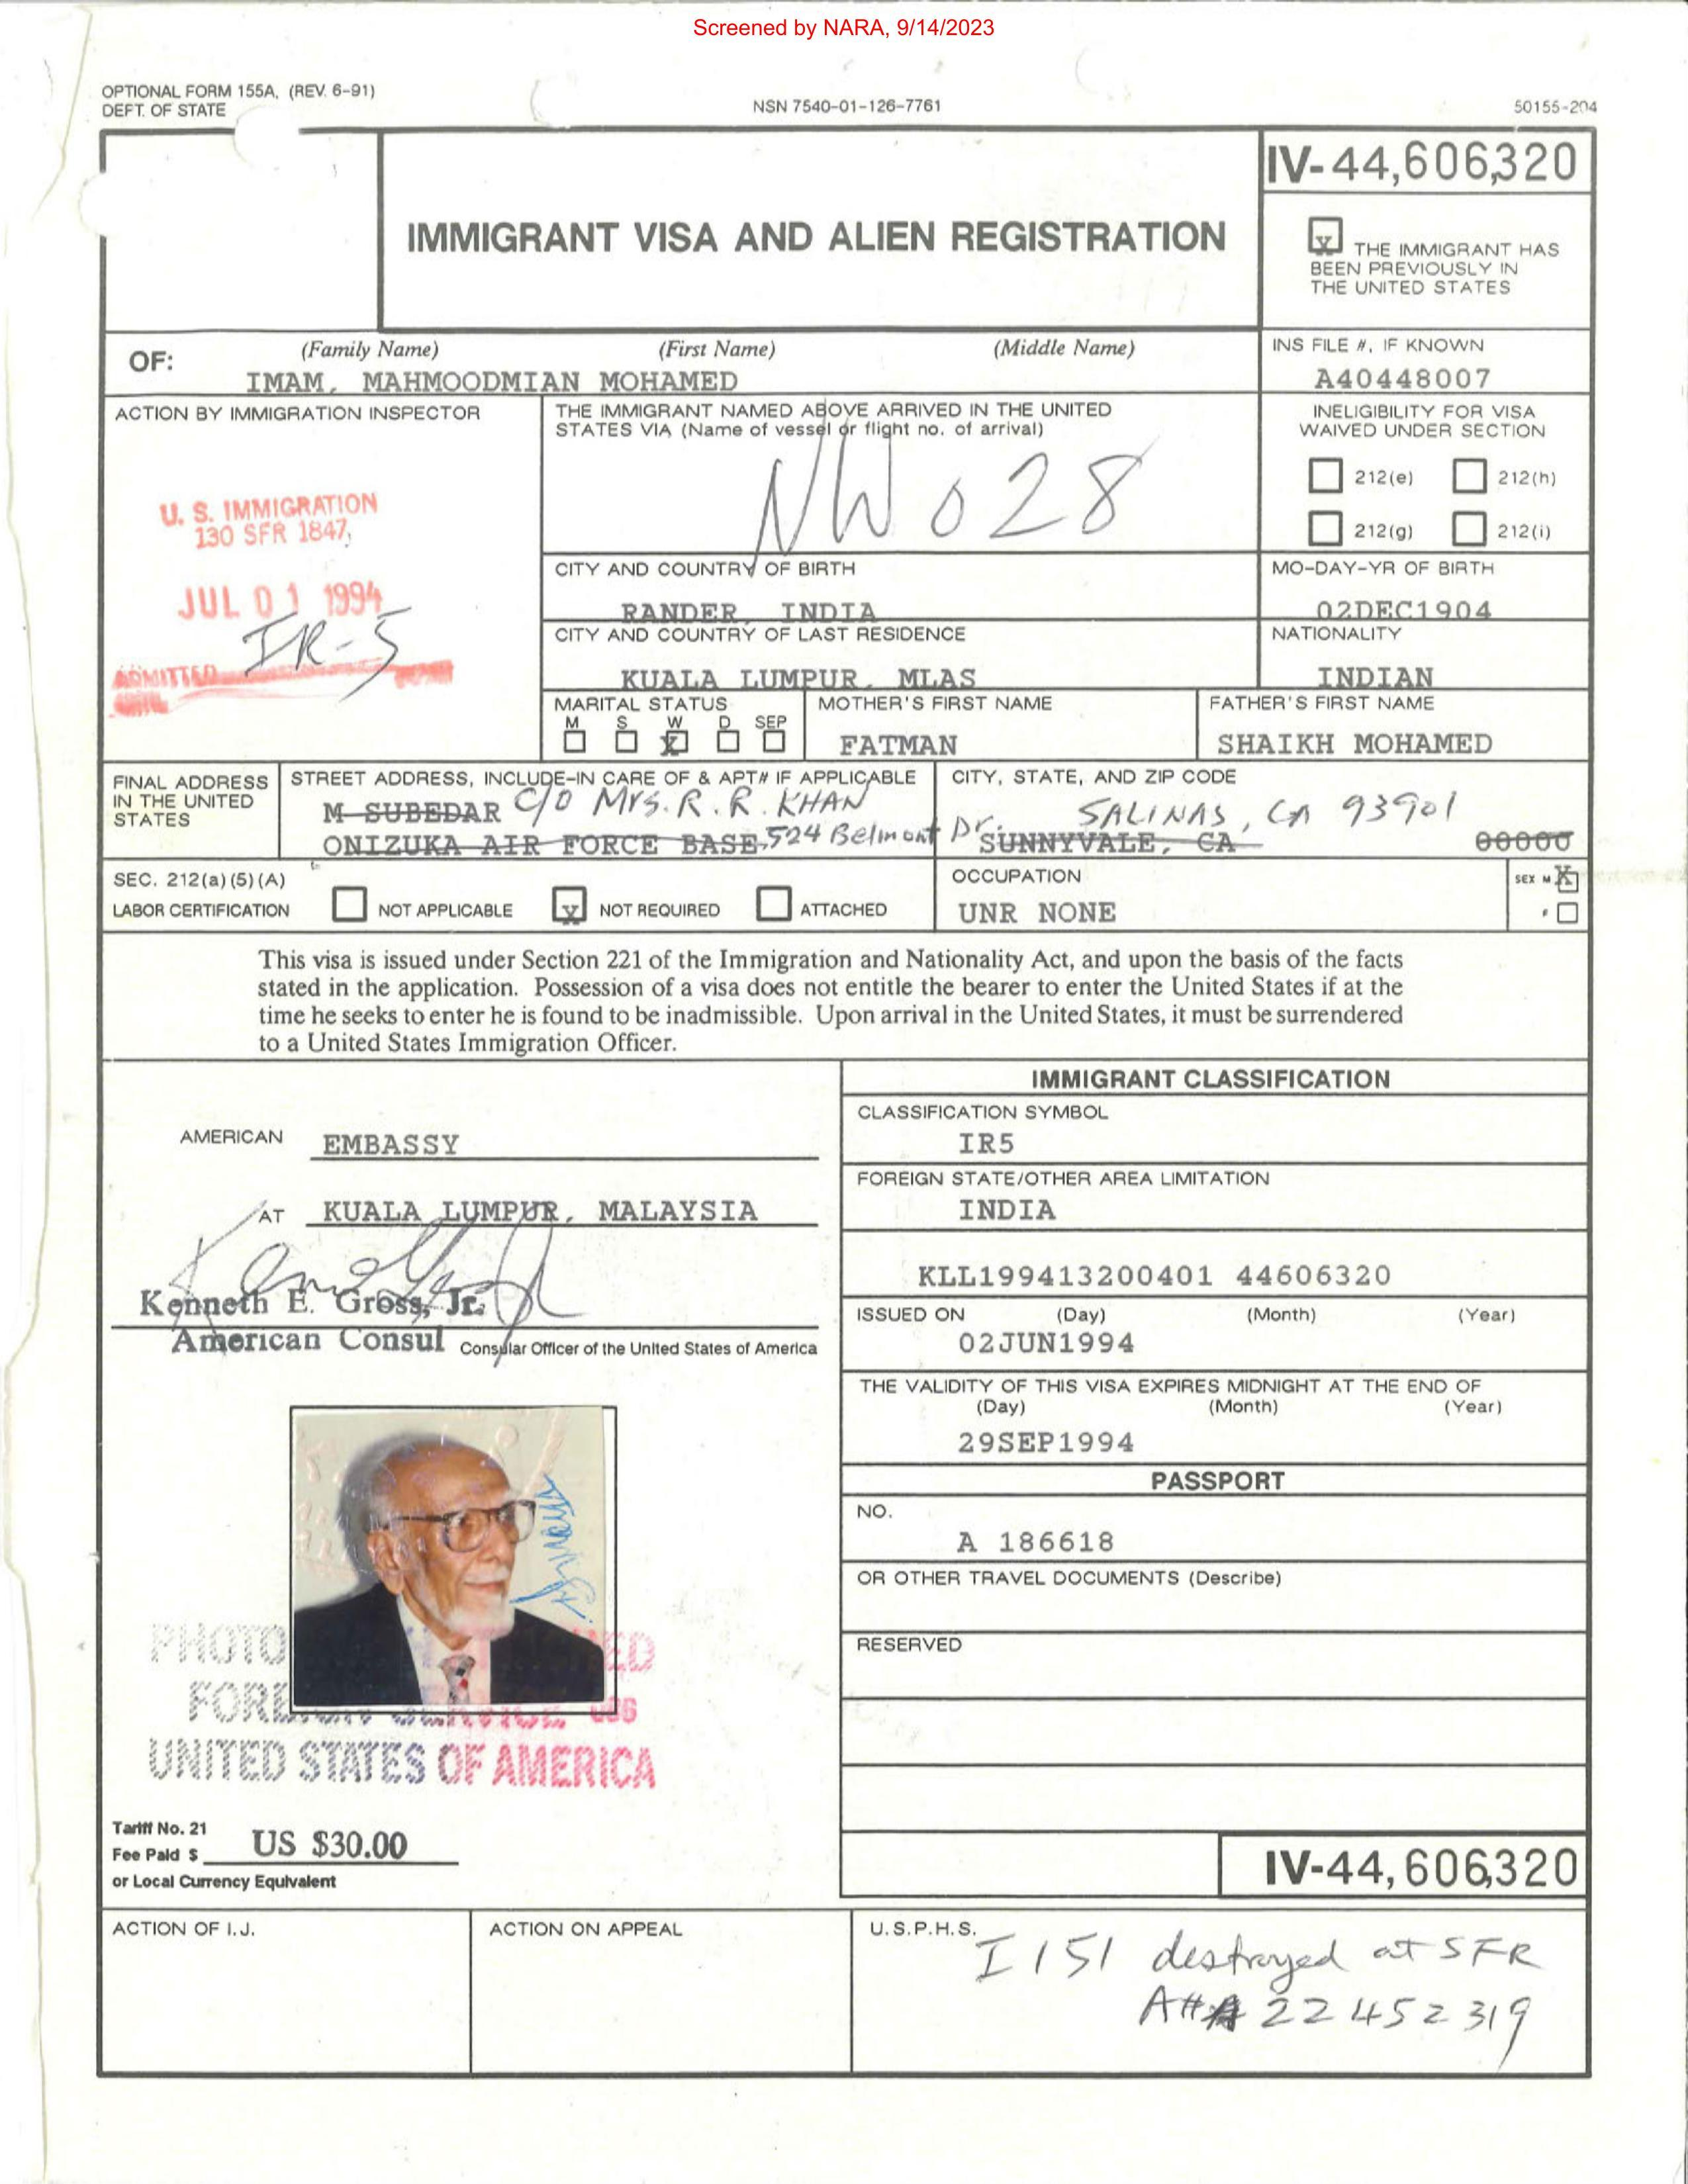 Screened by NARA, 9/14/2023
OPTIONAL FORM 155A, (REV. 6-91)
DEPT. OF STATE
NSN 7540-01-126-7761
50155-204
IV-44,606,320
IMMIGRANT VISA AND ALIEN REGISTRATION
X THE IMMIGRANT HAS
BEEN PREVIOUSLY IN
THE UNITED STATES
OF:
(Family Name) (First Name) (Middle Name)
IMAM, MAHMOODMIAN MOHAMED
INS FILE #, IF KNOWN
A40448007
ACTION BY IMMIGRATION INSPECTOR
U. S. IMMIGRATION
130 SFR 1847
JUL 01 1994
IR-5
ADMITTED
THE IMMIGRANT NAMED ABOVE ARRIVED IN THE UNITED
STATES VIA (Name of vessel or flight no. of arrival)
NW 028
INELIGIBILITY FOR VISA
WAIVED UNDER SECTION
212(e) 212(h)
212(g) 212(i)
CITY AND COUNTRY OF BIRTH
RANDER, INDIA
MO-DAY-YR OF BIRTH
02DEC1904
CITY AND COUNTRY OF LAST RESIDENCE
KUALA LUMPUR, MLAS
NATIONALITY
INDIAN
MARITAL STATUS
M S W D SEP
X
MOTHER'S FIRST NAME
FATMAN
FATHER'S FIRST NAME
SHAIKH MOHAMED
FINAL ADDRESS
IN THE UNITED
STATES
STREET ADDRESS, INCLUDE-IN CARE OF & APT# IF APPLICABLE
M SUBEDAR C/O Mrs. R. R. KHAN
ONIZUKA AIR FORCE BASE, 524 Belmont Dr.
CITY, STATE, AND ZIP CODE
SALINAS, CA 93901
SUNNYVALE, CA 00000
SEC. 212(a)(5)(A)
LABOR CERTIFICATION
NOT APPLICABLE X NOT REQUIRED ATTACHED
OCCUPATION
UNR NONE
SEX M X
F
This visa is issued under Section 221 of the Immigration and Nationality Act, and upon the basis of the facts
stated in the application. Possession of a visa does not entitle the bearer to enter the United States if at the
time he seeks to enter he is found to be inadmissible. Upon arrival in the United States, it must be surrendered
to a United States Immigration Officer.
AMERICAN EMBASSY
AT KUALA LUMPUR, MALAYSIA
Kenneth E. Gross, Jr.
American Consul Consular Officer of the United States of America
PHOTO
FOREIGN SERVICE
UNITED STATES OF AMERICA
Tariff No. 21
Fee Paid $ US $30.00
or Local Currency Equivalent
IMMIGRANT CLASSIFICATION
CLASSIFICATION SYMBOL
IR5
FOREIGN STATE/OTHER AREA LIMITATION
INDIA
KLL199413200401 44606320
ISSUED ON (Day) (Month) (Year)
02JUN1994
THE VALIDITY OF THIS VISA EXPIRES MIDNIGHT AT THE END OF
(Day) (Month) (Year)
29SEP1994
PASSPORT
NO.
A 186618
OR OTHER TRAVEL DOCUMENTS (Describe)
RESERVED
IV-44,606,320
ACTION OF I.J.
ACTION ON APPEAL
U.S.P.H.S.
I 151 destroyed at SFR
A# 22 452 319